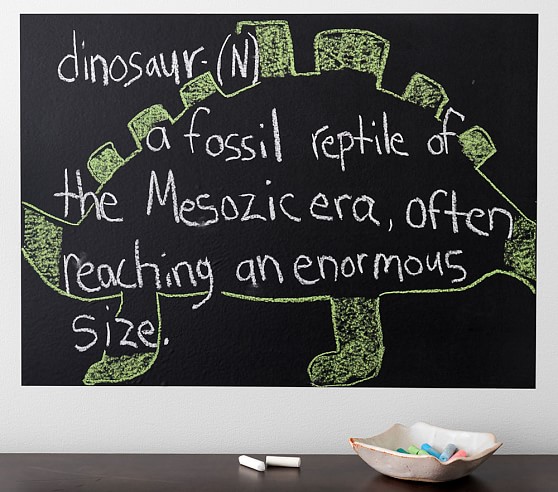 dinosaur. (N)
a fossil reptile of
the Mesozic era, often
reaching an enormous
size.